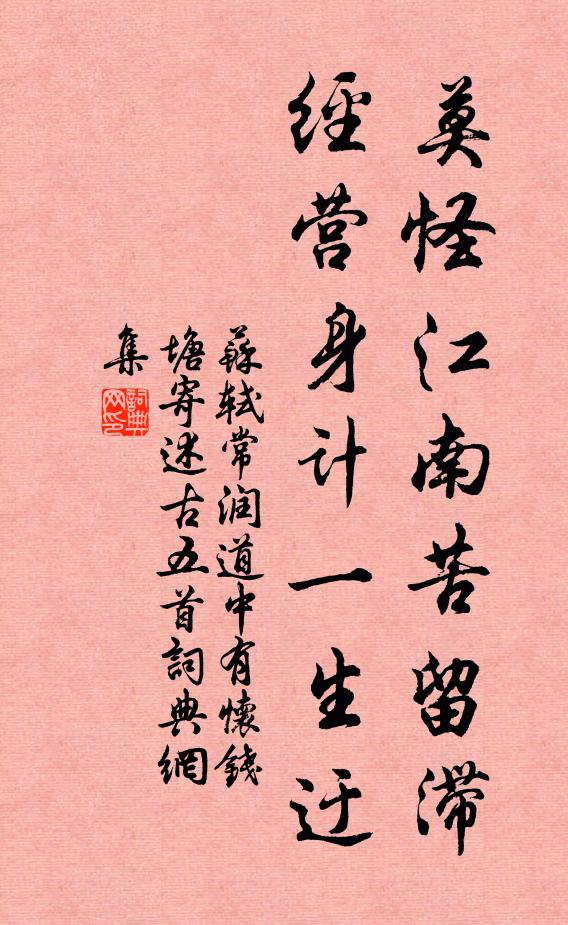 莫怪江南苦留滞
经营身计一生迂
蘇軾常润道中有懷錢
塘寄述古五首詞典網
集
詞典
网印